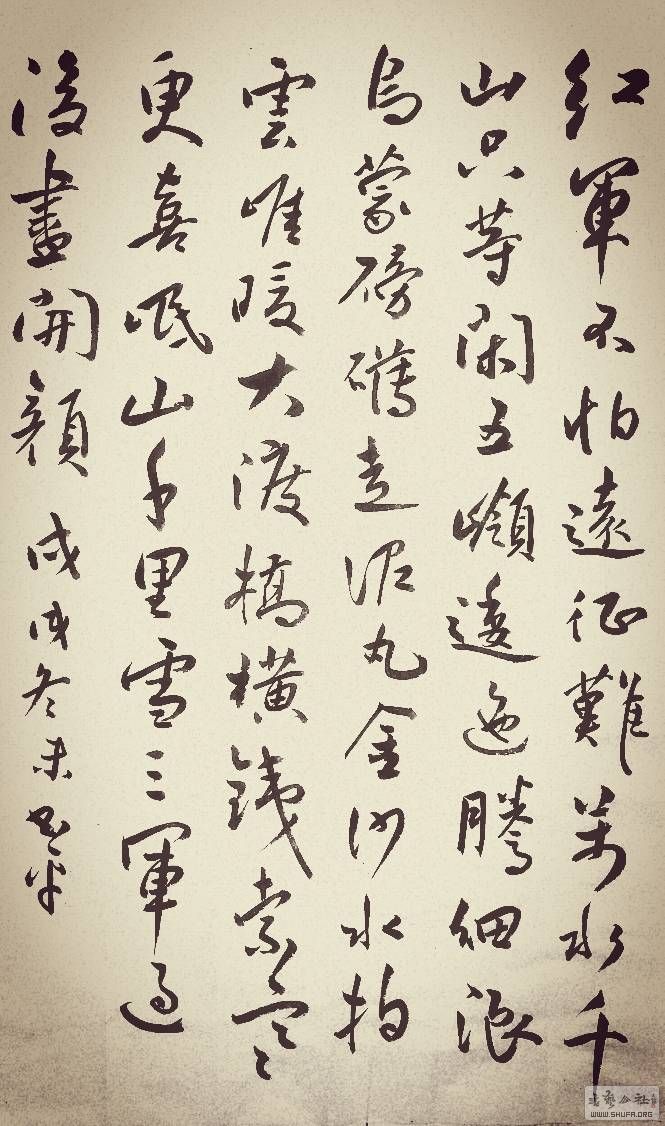 紅軍不怕遠征難萬水千
山只等閑五嶺逶迤騰細浪
烏蒙磅礴走泥丸金沙水拍
雲崖暖大渡橋橫鐵索寒
更喜岷山千里雪三軍過
後盡開顏 戊戌冬末
書藝公社
WWW.SHUFA.ORG